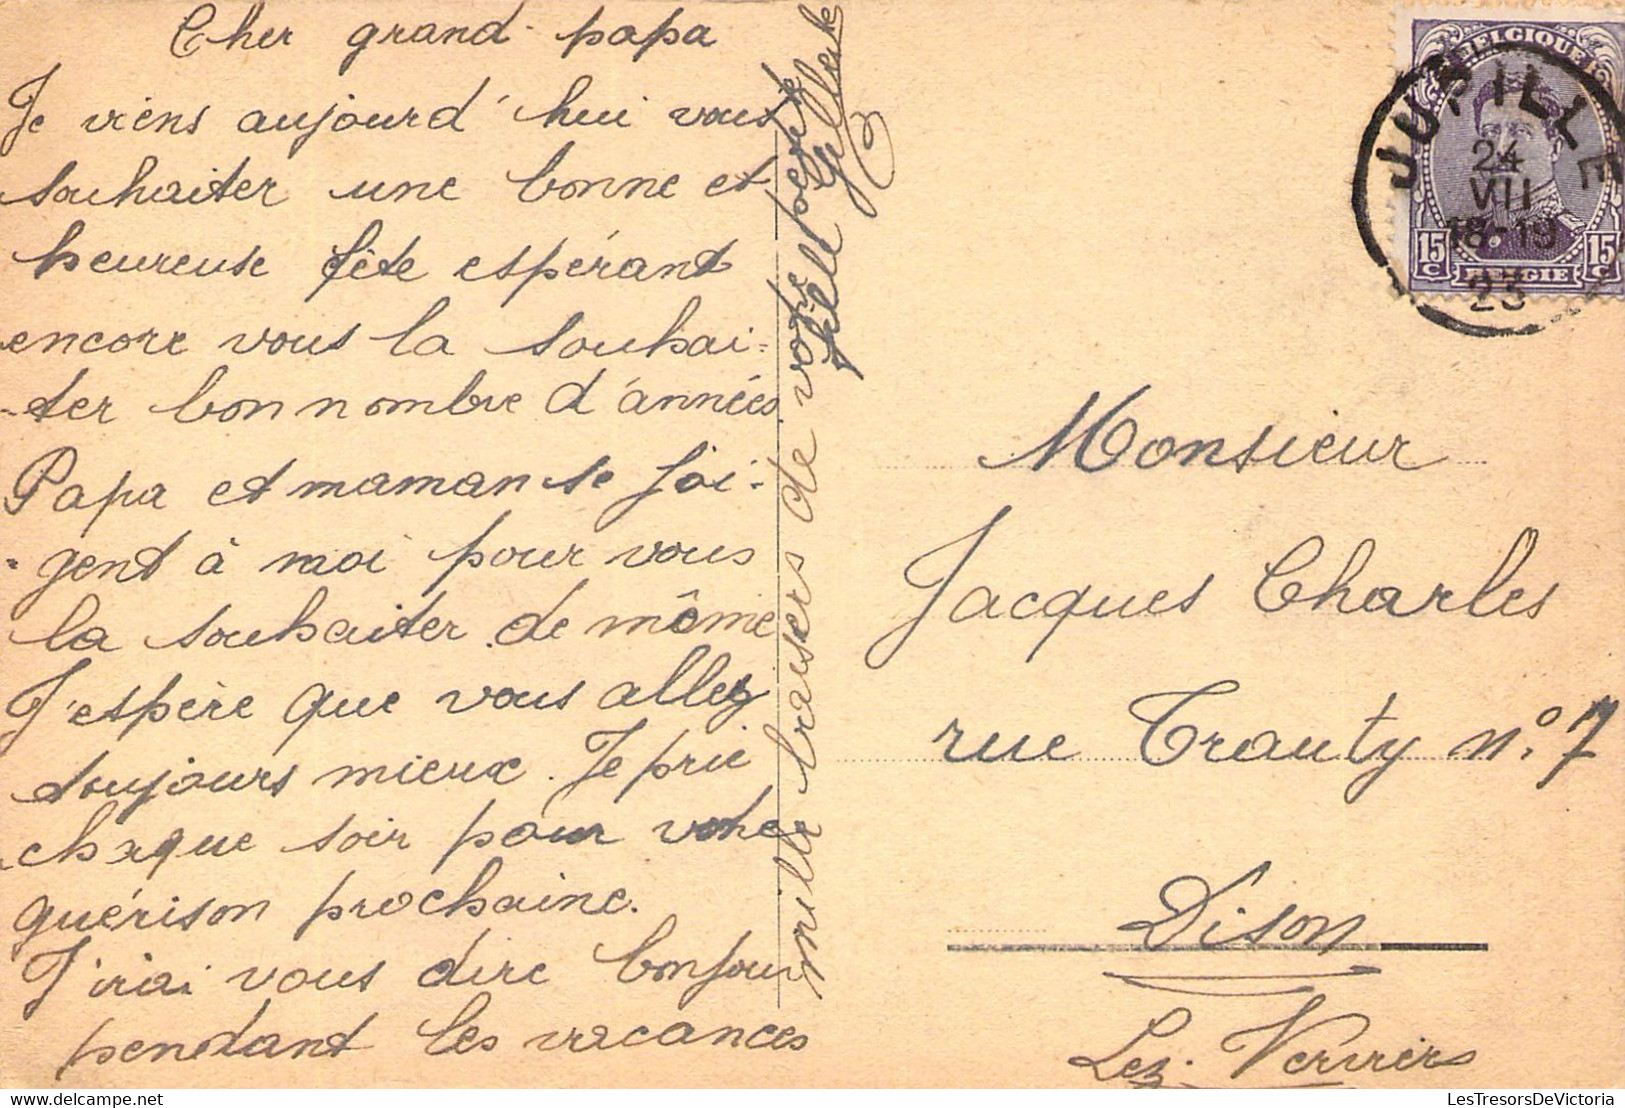 Cher grand-papa
Je viens aujourd'hui vous
souhaiter une bonne et
heureuse fête espérant
encore vous la souhai-
-ter bon nombre d'années
Papa et maman se joi-
-gent à moi pour vous
la souhaiter de même
J'espère que vous allez
toujours mieux. Je prie
chaque soir pour votre
guérison prochaine.
J'irai vous dire bonjour
pendant les vacances
mille baisers de votre petite
BELGIQUE
15 C
15 C
BELGIE
JUPILLE
24
VII
18-19
23
Monsieur
Jacques Charles
rue Trauty n° 7
Dison
Lez-Verviers
delcampe.net
LesTresorsDeVictoria